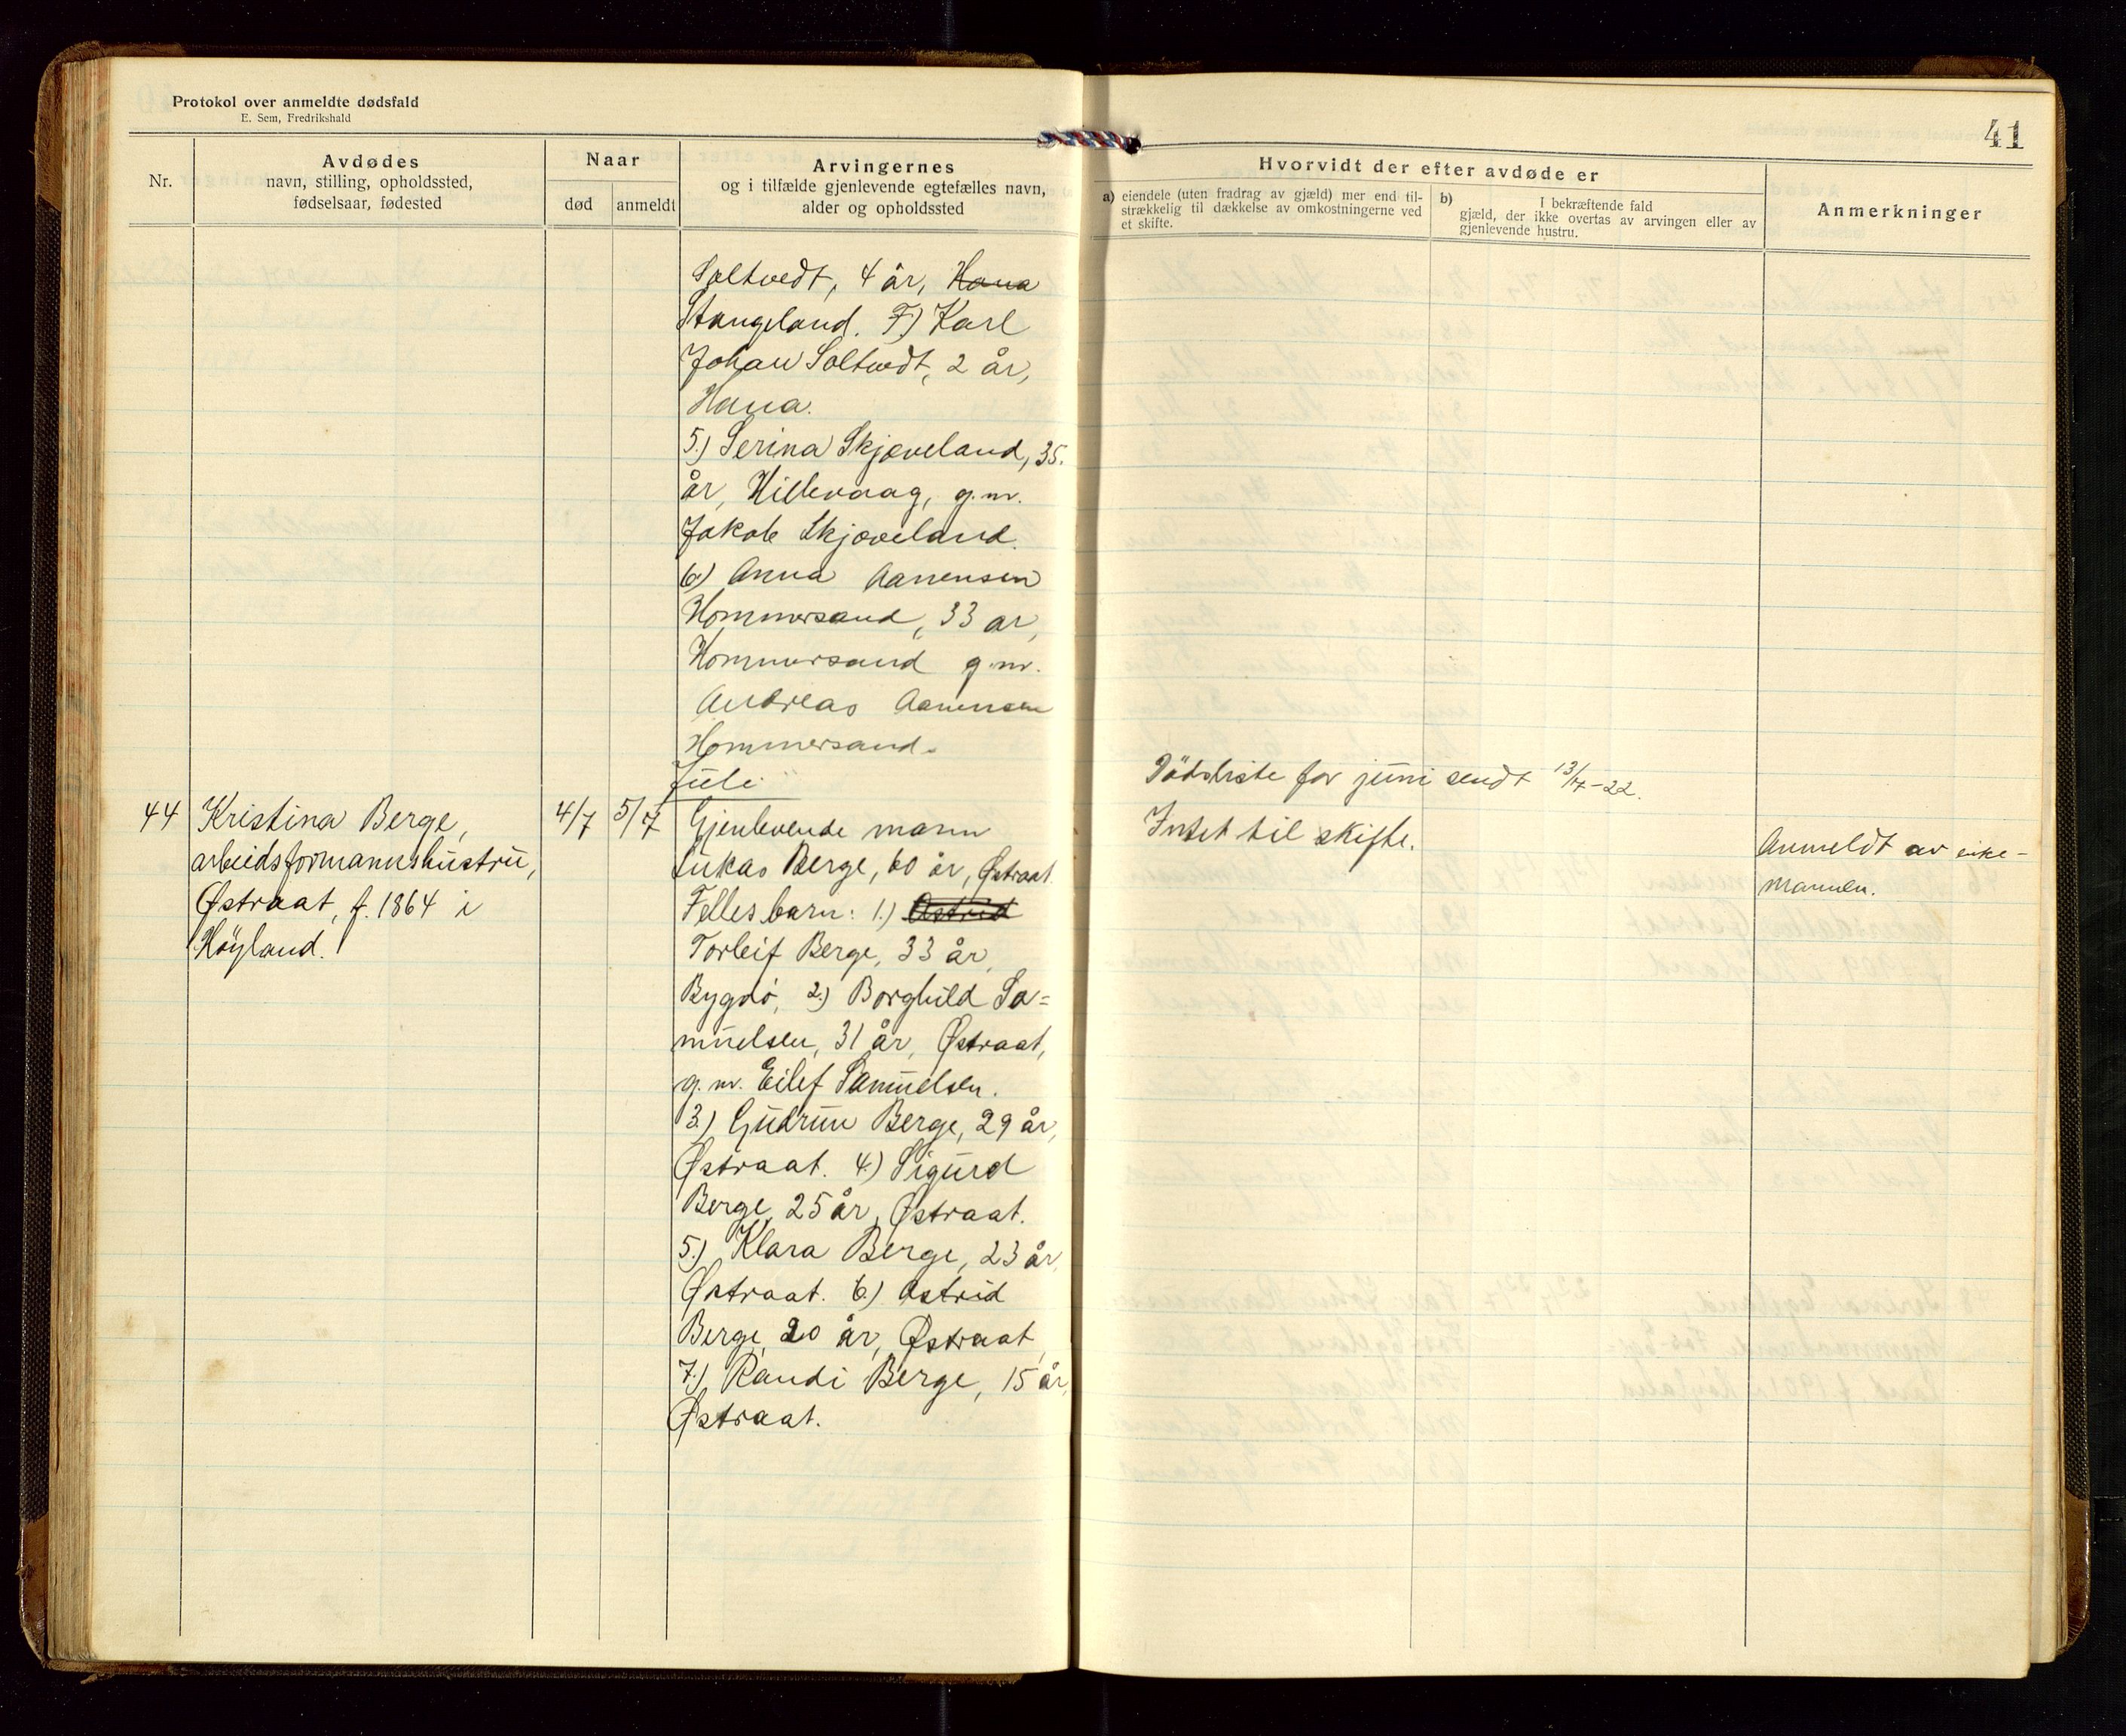 Protokol over anmeldte dødsfald
E. Sem, Fredrikshald
41
Nr.
Avdødes
navn, stilling, opholdssted,
fødselsaar, fødested
Naar
død
anmeldt
Arvingernes
og i tilfælde gjenlevende egtefælles navn,
alder og opholdssted
Hvorvidt der efter avdøde er
a) eiendele (uten fradrag av gjæld) mer end til-
strækkelig til dækkelse av omkostningerne ved
et skifte.
b) I bekræftende fald
gjæld, der ikke overtas av arvingen eller av
gjenlevende hustru.
Anmerkninger
Soltvedt, 4 år, Hana
Stangeland. F) Karl
Johan Soltvedt, 2 år,
Hana.
5.) Serina Skjæveland, 35.
år, Hillevaag, g.m.
Jakob Skjæveland.
6) Anna Aanensen
Hommersand, 33 år,
Hommersand g.m.
Andreas Aanensen
Hommersand.
Juli.
Dödsliste for juni sendt 13/7-22.
44
Kristina Berge,
arbeidsformannshustru,
Østraat, f. 1864 i
Höyland.
4/7
5/7
Gjenlevende mann
Lukas Berge, 60 år, Østraat.
Felles barn: 1.) Astrid
Torleif Berge, 33 år,
Bygdö, 2.) Borghild Sa=
muelsen, 31 år, Østraat,
g.m. Eilef Samuelsen.
3.) Gudrun Berge, 29 år,
Østraat. 4.) Sigurd
Berge, 25 år, Østraat.
5.) Klara Berge, 23 år,
Østraat. 6.) Astrid
Berge, 20 år, Østraat,
7.) Randi Berge, 15 år,
Østraat.
Intet til skifte.
Anmeldt av enke-
mannen.